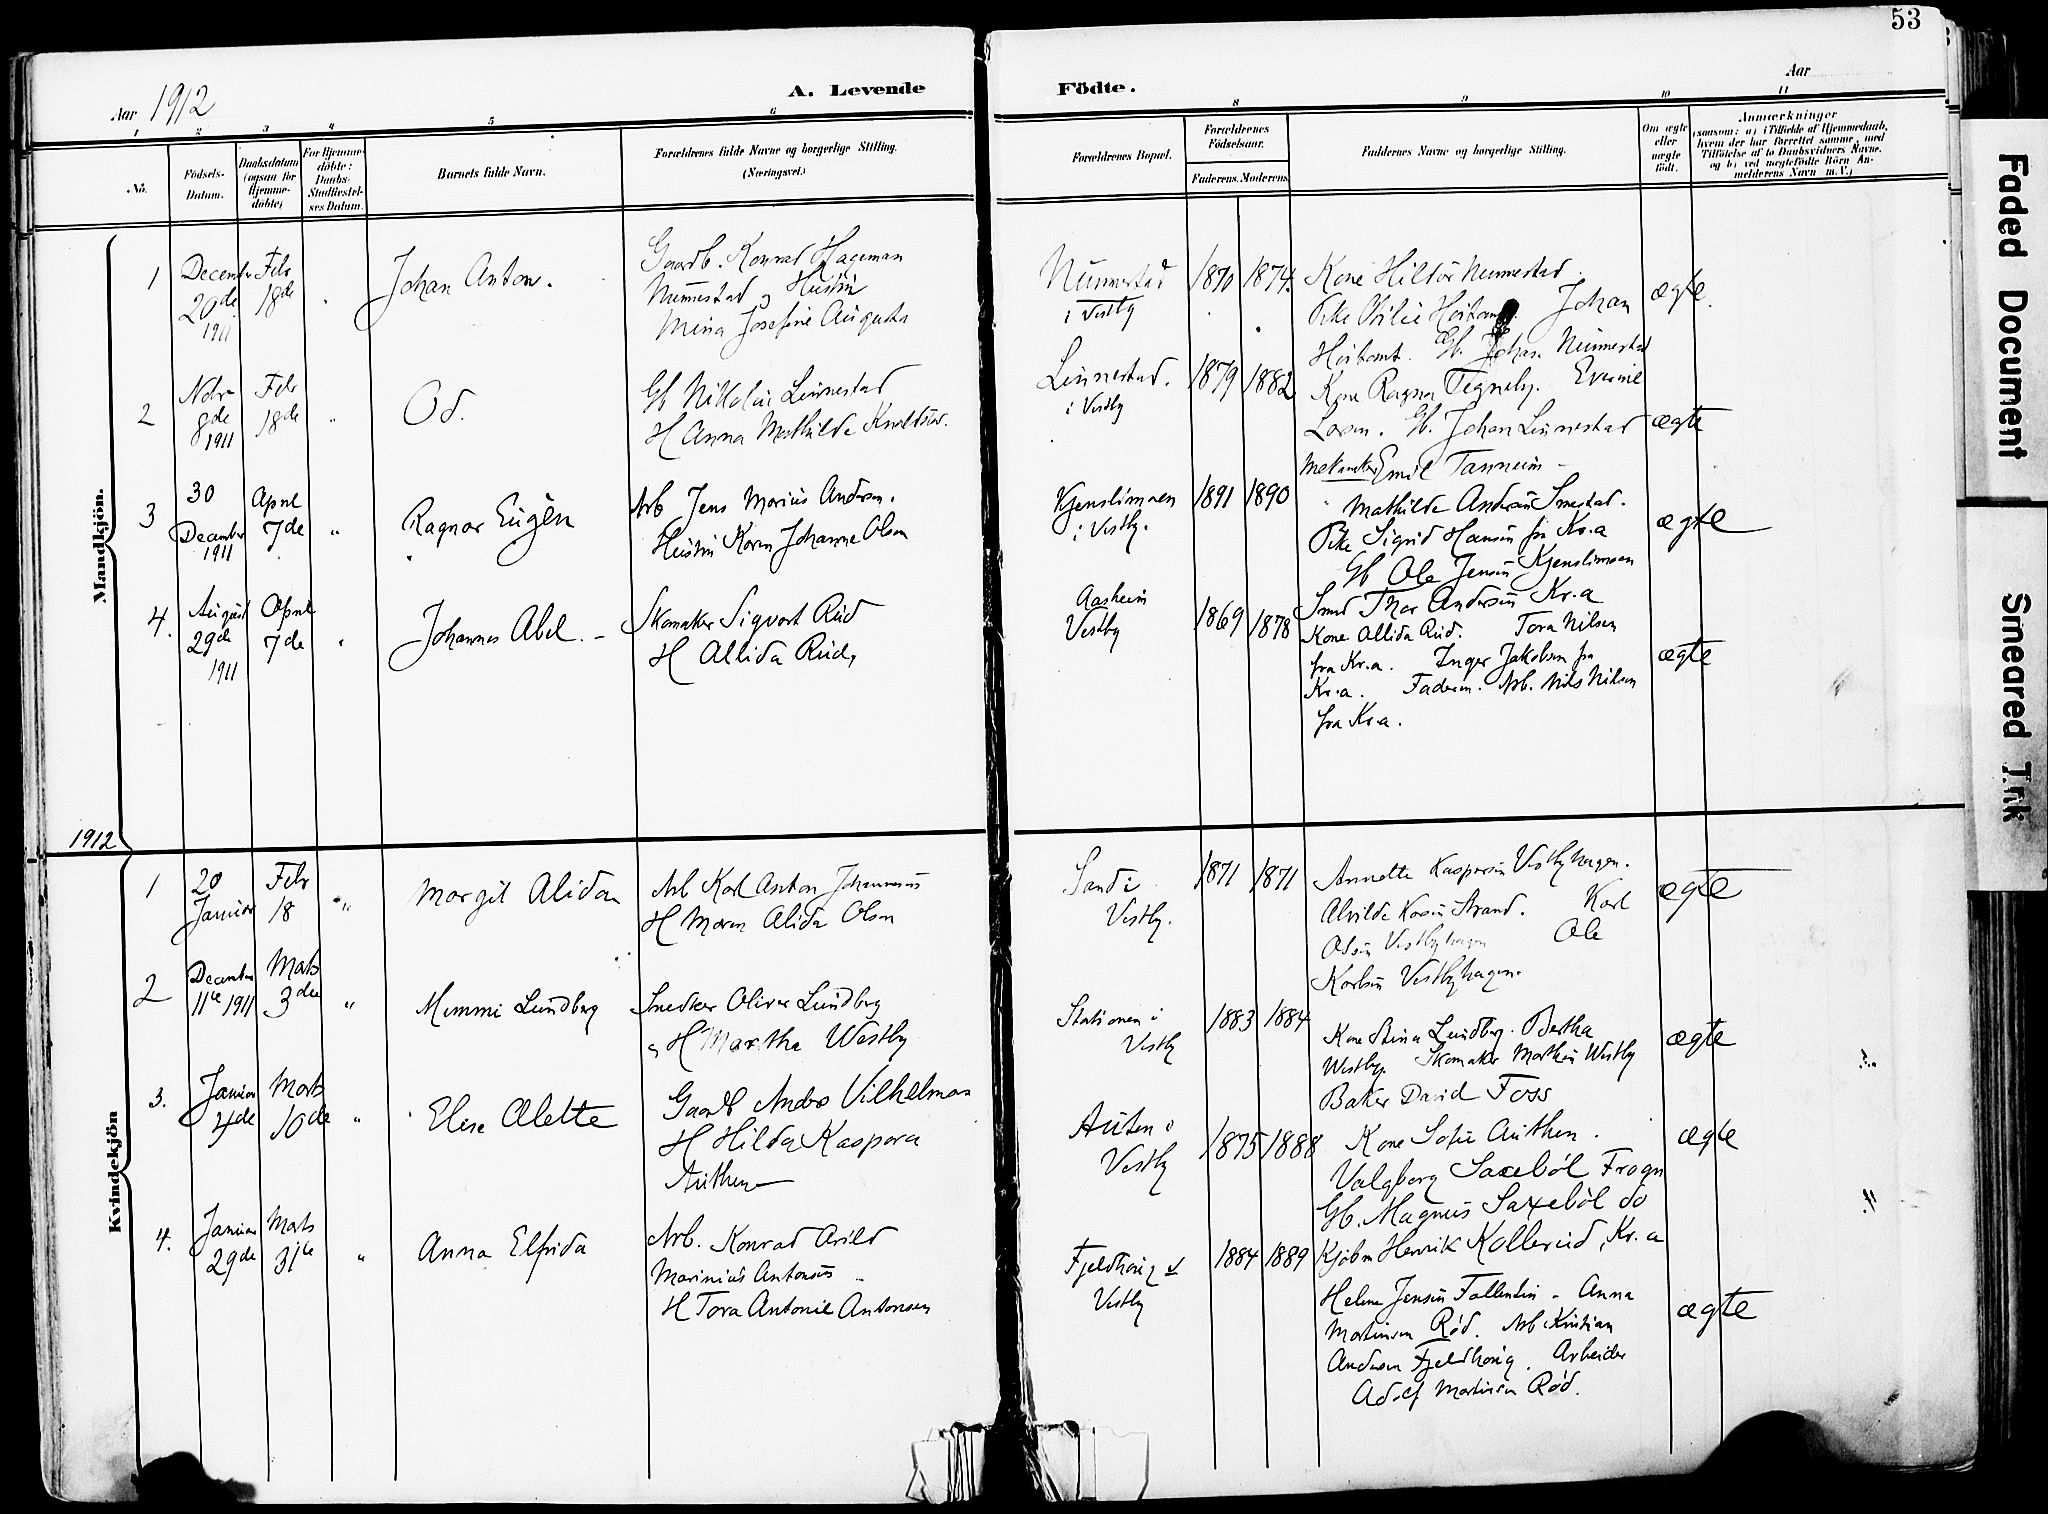 53
Aar 1912
A. Levende Födte.
Aar
1 2 3 4 5 6 8 9 10 11
No.
Födsels-
Datum.
Daabsdatum
(ogsaa for
Hjemme-
döbte)
For Hjemme-
döbte:
Daabs-
Stadfæstel-
ses Datum.
Barnets fulde Navn.
Forældrenes fulde Navne og borgerlige Stilling.
(Næringsvei.)
Forældrenes Bopæl.
Forældrenes
Födselsaar.
Faderens. Moderens.
Faddernes Navne og borgerlige Stilling.
Om ægte
eller
uægte
født.
Anmærkninger
(saasom: a) i Tilfælde af Hjemmedaab,
hvem der har forrettet samme, med
Tilföielse af to Daabsvidners Navne,
og b) ved uægtefödte Börn An-
melderens Navn m. V.)
Mandkjön.
1
December
20de
1911
Febr
18de
"
Johan Anton.
Gaardb. Konrad Hageman
Nunnestad og Hustru
Mina Josefine Augusta
Nunnestad
i Vestby
1870 1874.
Kone Hilda Nunnestad.
Pike Otilie Hoitomt. Johan
Hoitomt. Gb. Johan Nunnestad
ægte.
2
Novbr
8de
1911
Febr
18de
"
Od.
Gb Nikolai Linnestad
H Anna Mathilde Knudsen.
Linnestad.
i Vestby
1879 1882
Kone Ragna Tegneby. Evenie
Larsen. Gb. Johan Linnestad
Mekaniker Emil Tanneim -
ægte
3
30
December
1911
April
7de
"
Ragnar Eugèn
Arb Jens Marius Andersen.
Hustru Karen Johanne Olsen
Kjenslimoen
i Vestby.
1891 1890
" Mathilde Andersen Smestad.
Pike Sigrid Hansen fra Kr.a
Gb Ole Jensen Kjenslimoen
ægte
4.
August
29de
1911
April
7de
"
Johannes Abel. -
Skomaker Sigvart Rud
H Allida Rud,
Aasheim
Vestby
1869 1878
Smed Thor Andersen Kr.a
Kone Allida Rud. Tora Nilsen
fra Kr.a. Inger Jakobsen fra
Kr.a. Faderen. Arb. Nils Nilsen
fra Kr.a.
ægte
1912
Kvindekjön
1
20
Januar
Febr
18
"
Margit Alida
Arb Karl Anton Johannesen
H Maren Alida Olsen
Sand i
Vestby.
1871 1871
Annette Kaspersen Vestbyhagen.
Alvilde Kasin Strand. Karl
Olsen Vestbyhagen Ole
Karlsen Vestbyhagen.
ægte
2
December
11te 1911
Marts
3die
"
Mimmi Lundberg
Snedker Oliver Lundberg
og H Martha Westby
Stationen i
Vestby
1883 1884
Kone Stina Lundberg. Bertha
Westby. Skomaker Martin Westby
Baker David Foss
ægte
3.
Januar
4de
Marts
10de
"
Elise Alette
Gaardb Andrs Vilhelmsen
H Hilda Kaspara
Authen
Auten i
Vestby
1875 1888
Kone Sofie Authen.
Valgborg Saxeböl Frogn
Gb. Magnus Saxeböl do
ægte
4.
Januar
29de
Marts
31te
"
Anna Elfrida
Arb. Konrad Arild
Marinius Antonsen
H Tora Antonie Antonsen
Fjeldhoug i
Vestby
1884 1889
Kjøbm Henrik Kollerud, Kr.a
Helene Jensen Fallentin - Anna
Martinsen Rød. Arb Kristian
Andersen Fjeldhoug. Arbeider
Adolf Martinsen Rød.
ægte
Faded Document
Smeared Ink